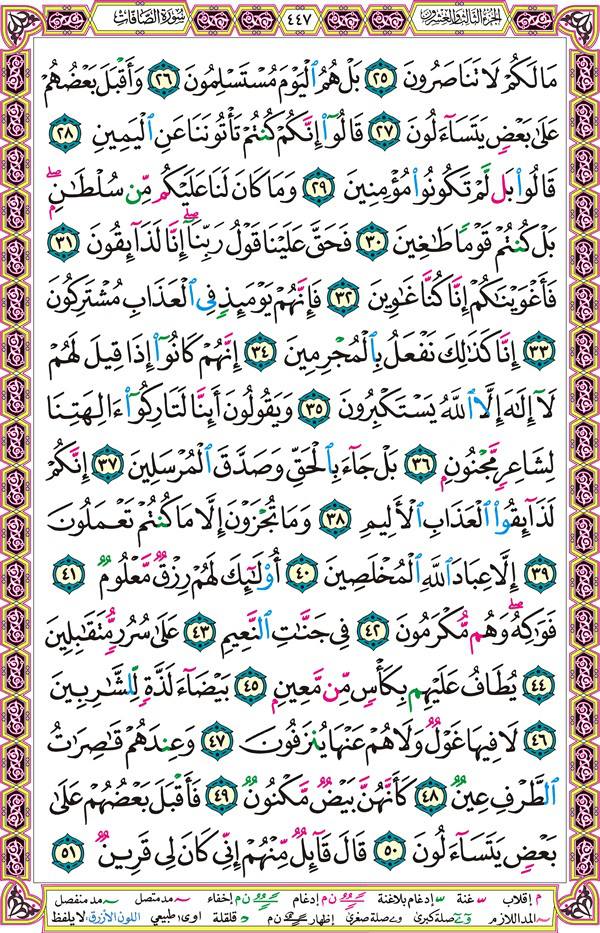 سورة الصافات ٤٤٧ الجزء الثالث والعشرون
مَا لَكُمْ لَا تَنَاصَرُونَ ٢٥ بَلْ هُمُ ٱلْيَوْمَ مُسْتَسْلِمُونَ ٢٦ وَأَقْبَلَ بَعْضُهُمْ
عَلَىٰ بَعْضٍ يَتَسَآءَلُونَ ٢٧ قَالُوٓا۟ إِنَّكُمْ كُنتُمْ تَأْتُونَنَا عَنِ ٱلْيَمِينِ ٢٨
قَالُوا۟ بَل لَّمْ تَكُونُوا۟ مُؤْمِنِينَ ٢٩ وَمَا كَانَ لَنَا عَلَيْكُم مِّن سُلْطَٰنٍۭ ۖ
بَلْ كُنتُمْ قَوْمًا طَٰغِينَ ٣٠ فَحَقَّ عَلَيْنَا قَوْلُ رَبِّنَآ ۖ إِنَّا لَذَآئِقُونَ ٣١
فَأَغْوَيْنَٰكُمْ إِنَّا كُنَّا غَٰوِينَ ٣٢ فَإِنَّهُمْ يَوْمَئِذٍ فِى ٱلْعَذَابِ مُشْتَرِكُونَ
٣٣ إِنَّا كَذَٰلِكَ نَفْعَلُ بِٱلْمُجْرِمِينَ ٣٤ إِنَّهُمْ كَانُوٓا۟ إِذَا قِيلَ لَهُمْ
لَآ إِلَٰهَ إِلَّا ٱللَّهُ يَسْتَكْبِرُونَ ٣٥ وَيَقُولُونَ أَئِنَّا لَتَارِكُوٓا۟ ءَالِهَتِنَا
لِشَاعِرٍ مَّجْنُونٍۭ ٣٦ بَلْ جَآءَ بِٱلْحَقِّ وَصَدَّقَ ٱلْمُرْسَلِينَ ٣٧ إِنَّكُمْ
لَذَآئِقُوا۟ ٱلْعَذَابِ ٱلْأَلِيمِ ٣٨ وَمَا تُجْزَوْنَ إِلَّا مَا كُنتُمْ تَعْمَلُونَ
٣٩ إِلَّا عِبَادَ ٱللَّهِ ٱلْمُخْلَصِينَ ٤٠ أُو۟لَٰٓئِكَ لَهُمْ رِزْقٌ مَّعْلُومٌ ٤١
فَوَٰكِهُ ۖ وَهُم مُّكْرَمُونَ ٤٢ فِى جَنَّٰتِ ٱلنَّعِيمِ ٤٣ عَلَىٰ سُرُرٍ مُّتَقَٰبِلِينَ
٤٤ يُطَافُ عَلَيْهِم بِكَأْسٍ مِّن مَّعِينٍۭ ٤٥ بَيْضَآءَ لَذَّةٍ لِّلشَّٰرِبِينَ
٤٦ لَا فِيهَا غَوْلٌ وَلَا هُمْ عَنْهَا يُنزَفُونَ ٤٧ وَعِندَهُمْ قَٰصِرَٰتُ
ٱلطَّرْفِ عِينٌ ٤٨ كَأَنَّهُنَّ بَيْضٌ مَّكْنُونٌ ٤٩ فَأَقْبَلَ بَعْضُهُمْ عَلَىٰ
بَعْضٍ يَتَسَآءَلُونَ ٥٠ قَالَ قَآئِلٌ مِّنْهُمْ إِنِّى كَانَ لِى قَرِينٌ ٥١
م إقلاب غنة إدغام بلاغنة إدغام ن م إخفاء مد متصل مد منفصل
المد اللازم صلة كبرى صلة صغرى إظهار ن م قلقلة اوى طبيعي اللون الأزرق: لا يلفظ